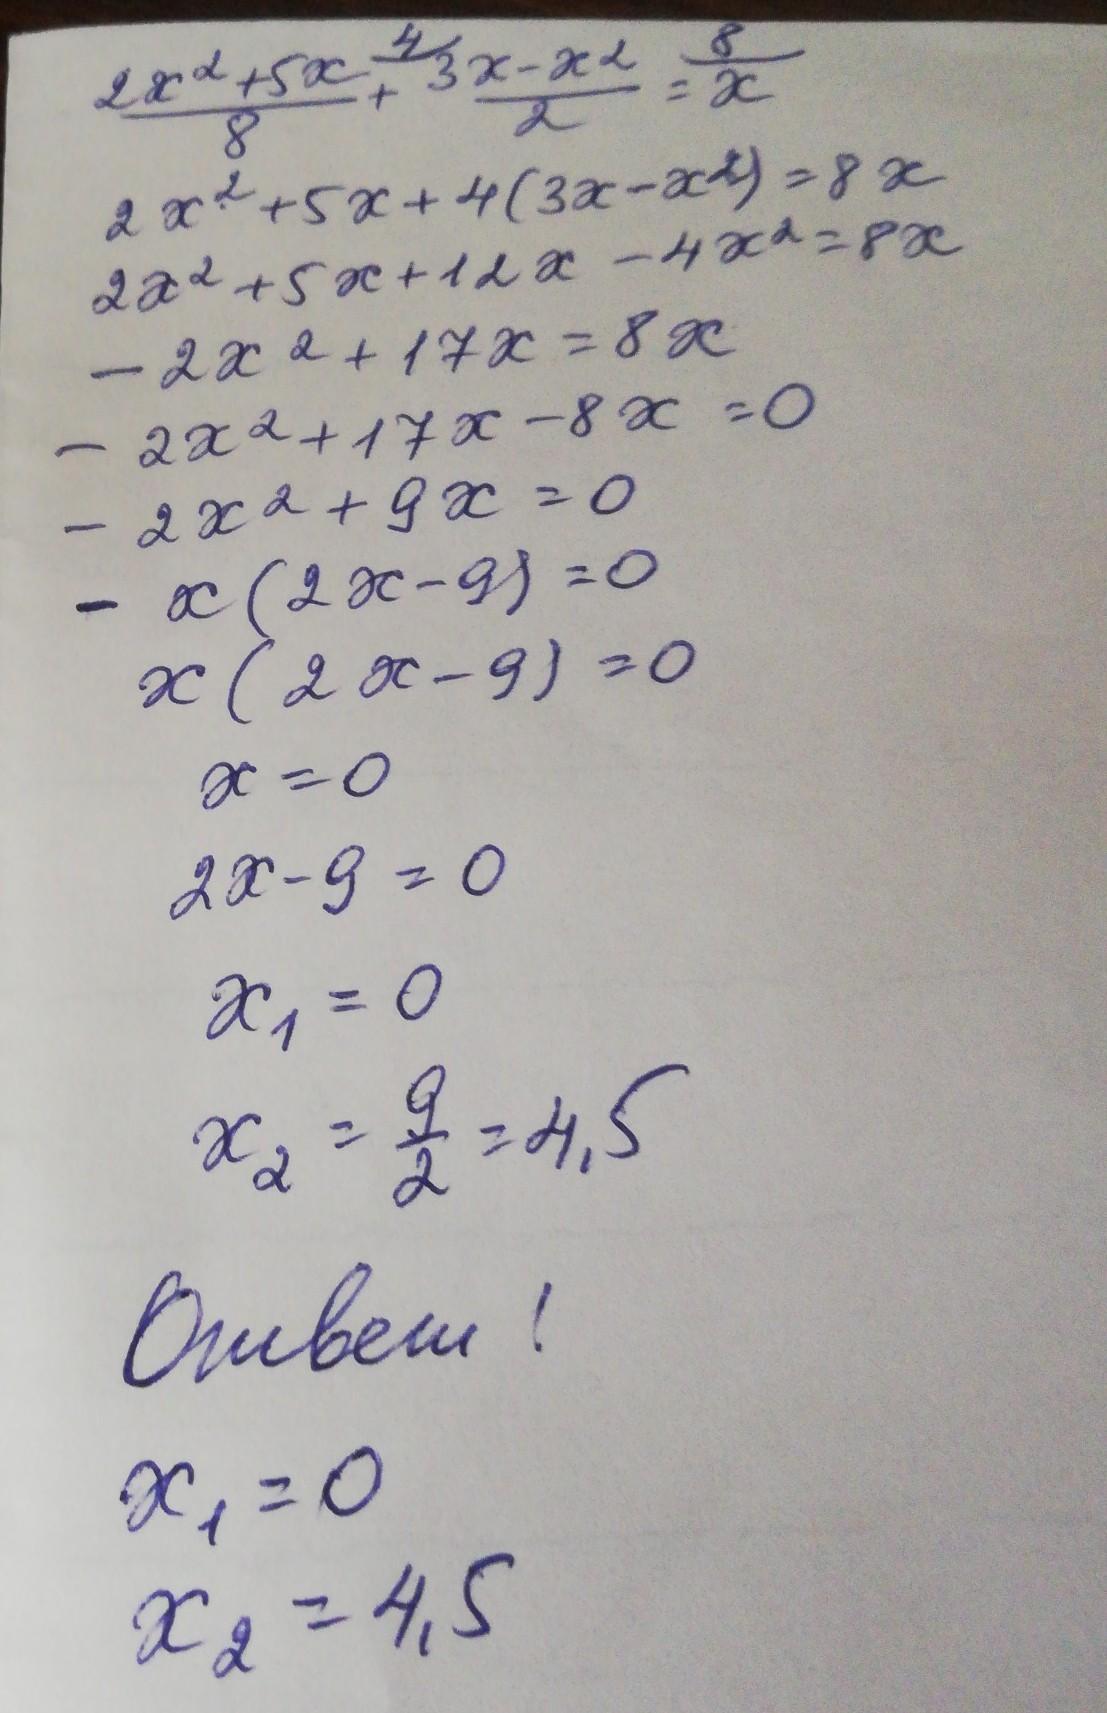 (2x²+5x)/8 + ⁴⁄(3x-x²)/2 = ⁸⁄x
2x²+5x+4(3x-x²)=8x
2x²+5x+12x-4x²=8x
-2x²+17x=8x
-2x²+17x-8x=0
-2x²+9x=0
-x(2x-9)=0
x(2x-9)=0
x=0
2x-9=0
x₁=0
x₂=9/2=4,5
Ответ!
x₁=0
x₂=4,5